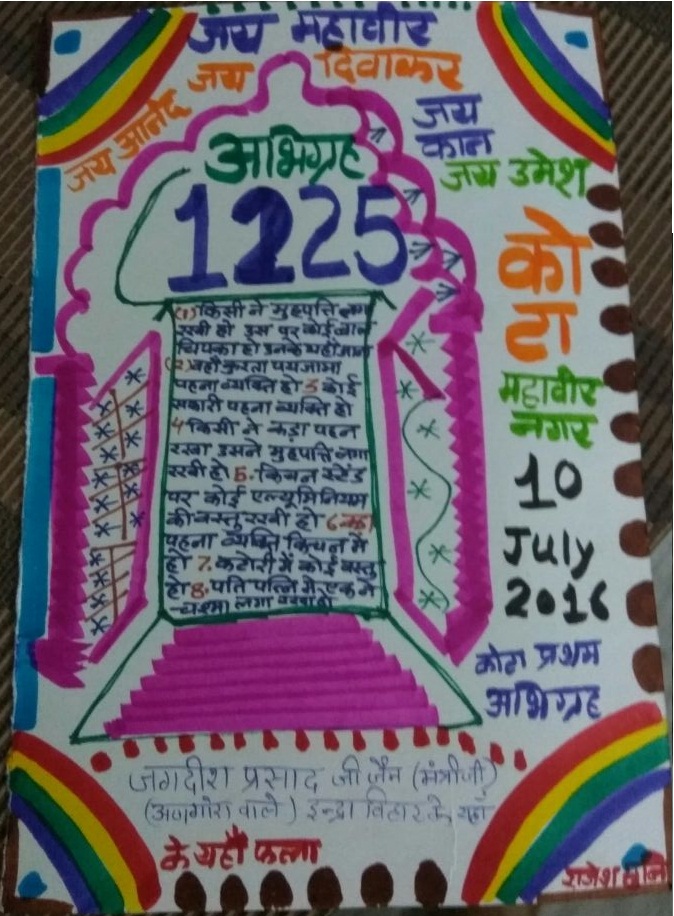 जय महावीर
जय आनंद जय दिवाकर
जय
कान
जय उमेश
अभिग्रह
1225
(1) किसी ने मुहपत्ति लगा
रखी हो उस पर कोई
चिपका हो उनके यहाँ जाना
(2) वहाँ कुरता पयजामा
पहना व्यक्ति हो 3 कोई
सफारी पहना व्यक्ति हो
4 किसी ने कड़ा पहन
रखा उसने मुहपत्ति लगा
रखी हो 5. किचन स्टेंड
पर कोई एल्यूमिनियम
की वस्तु रखी हो 6
पहना व्यक्ति किचन में
हो 7. कटोरी में कोई वस्तु
हो 8. पति पत्नि में एक ने
चश्मा लगा
को
टा
महावीर
नगर
10
July
2016
कोटा प्रथम
अभिग्रह
जगदीश प्रसाद जी जैन (मंत्रीजी)
(अलगोरा वाले) इन्द्रा विहार के यहाँ
के यहाँ फला
राजेश मुनि